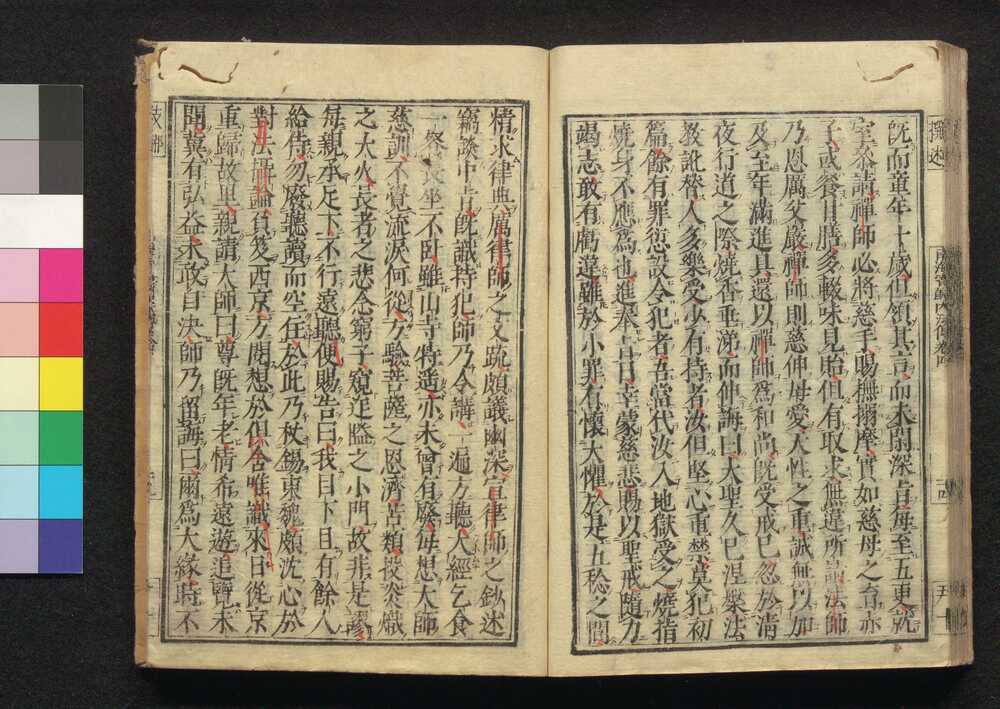 既而童年十歲但領其言而未閑深旨每至五更就
室參請禪師必將慈手賜撫搦摩實如慈母之育赤
子或餐甘膳多輟味見貽但有取求無違所請法師
乃恩厲父嚴禪師則慈伸母愛天性之重誠無以加
及至年滿進具還以禪師為和尚既受戒已忽於清
夜行道之際燒香垂涕而伸誨曰大聖久已涅槃法
教訛替人多樂受少有持者汝但堅心重禁莫犯初
篇餘有罪愆設令犯者吾當代汝入地獄受之燒指
燒身不應為也進奉旨日幸蒙慈悲賜以聖戒隨力
竭志敢有虧違雖於小罪有懷大懼於是五稔之間
情求律典厲律師之文疏頗議幽深宣律師之鈔述
竊談中旨既識持犯師乃令講一遍方聽大經乞食
一餐長坐不臥雖山寺村遙亦未曾有廢每想大師
慈訓不覺流淚何從方驗菩薩之恩濟苦類投炎熾
之大火長者之悲念窮子窺迮隘之小門故非是謬
每親承足下不行遠聽便賜告曰我目下且有餘人
給侍勿廢聽讀而空住於此乃杖錫東魏頗沈心於
對法攝論負笈西京方閱想於俱舍唯識來日從京
重歸故里親請大師曰尊既年老情希遠遊追覽未
聞冀有弘益未敢自決師乃留誨曰爾為大緣時不